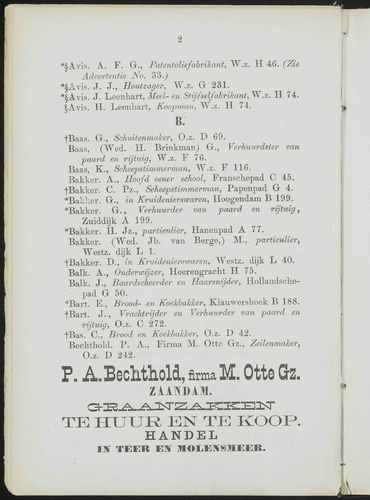 2
*§Avis. A. F. G., Patentoliefabrikant, W.z. H 46. (Zie
Advertentie No. 33.)
*§Avis. J. J., Houtzager, W.z. G 231.
*§Avis. J. Leenhart, Meel- en Stijfselfabrikant, W.z. H 74.
§Avis. H. Leenhart, Koopman, W.z. H 74.
B.
†Baas. G., Schuitenmaker, O.z. D 69.
Baas, (Wed. H. Brinkman) G., Verhuurdster van
paard en rijtuig, W.z. F 76.
Baas, K., Scheepstimmerman, W.z. F 116.
Bakker. A., Hoofd eener school, Franschepad C 45.
†Bakker. C. Pz., Scheepstimmerman, Papenpad G 4.
*Bakker. G., in Kruidenierswaren, Hoogendam B 199.
*Bakker. G., Verhuurder van paard en rijtuig,
Zuiddijk A 199.
*Bakker. H. Jz., particulier, Hanenpad A 77.
Bakker. (Wed. Jb. van Berge,) M., particulier,
Westz. dijk L 1.
†Bakker. D., in Kruidenierswaren, Westz. dijk L 40.
Balk. A., Onderwijzer, Heerengracht H 75.
Balk. J., Baardscheerder en Haarsnijder, Hollandsche-
pad G 50.
*Bart. E., Brood- en Koekbakker, Klauwershoek B 188.
†Bart. J., Vrachtrijder en Verhuurder van paard en
rijtuig, O.z. C 272.
†Bas. C., Brood en Koekbakker, O.z. D 42.
Bechthold. P. A., Firma M. Otte Gz., Zeilenmaker,
O.z. D 242.
P. A. Bechthold, firma M. Otte Gz.
ZAANDAM.
GRAANZAKKEN
TE HUUR EN TE KOOP.
HANDEL
IN TEER EN MOLENSMEER.